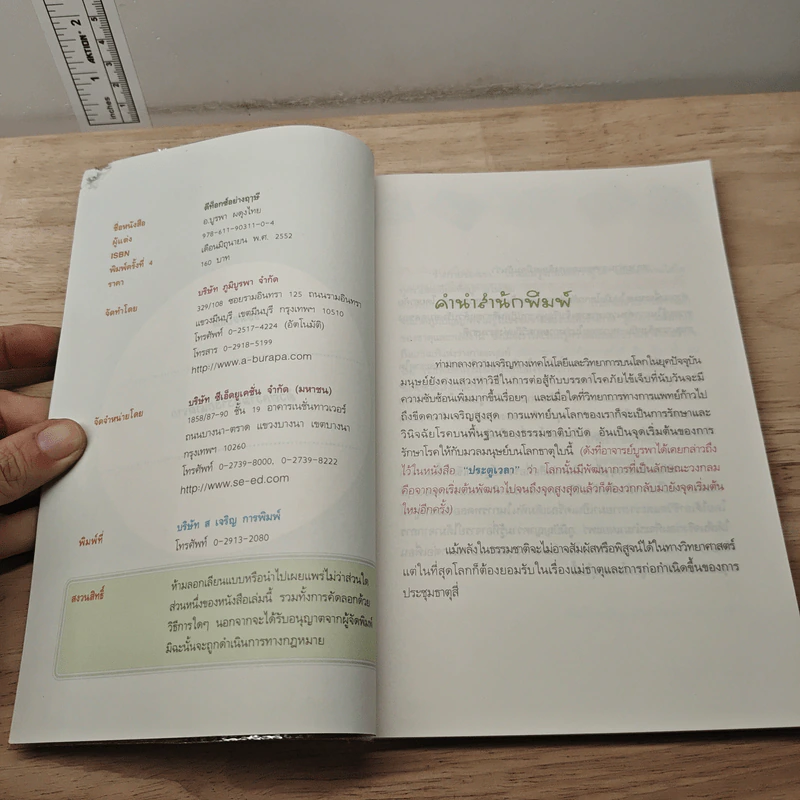 AKTION
inches
1
2
ชื่อหนังสือ ดีท็อกซ์อย่างฤๅษี
ผู้แต่ง อ.บูรพา ผดุงไทย
ISBN 978-611-90311-0-4
พิมพ์ครั้งที่ 4 เดือนมิถุนายน พ.ศ. 2552
ราคา 160 บาท
จัดทำโดย บริษัท ภูมิบูรพา จำกัด
329/108 ซอยรามอินทรา 125 ถนนรามอินทรา
แขวงมีนบุรี เขตมีนบุรี กรุงเทพฯ 10510
โทรศัพท์ 0-2517-4224 (อัตโนมัติ)
โทรสาร 0-2918-5199
http://www.a-burapa.com
จัดจำหน่ายโดย บริษัท ซีเอ็ดยูเคชั่น จำกัด (มหาชน)
1858/87-90 ชั้น 19 อาคารเนชั่นทาวเวอร์
ถนนบางนา-ตราด แขวงบางนา เขตบางนา
กรุงเทพฯ 10260
โทรศัพท์ 0-2739-8000, 0-2739-8222
http://www.se-ed.com
พิมพ์ที่ บริษัท ส เจริญ การพิมพ์
โทรศัพท์ 0-2913-2080
สงวนสิทธิ์ ห้ามลอกเลียนแบบหรือนำไปเผยแพร่ไม่ว่าส่วนใด
ส่วนหนึ่งของหนังสือเล่มนี้ รวมทั้งการคัดลอกด้วย
วิธีการใดๆ นอกจากจะได้รับอนุญาตจากผู้จัดพิมพ์
มิฉะนั้นจะถูกดำเนินการทางกฎหมาย
คำนำสำนักพิมพ์
ท่ามกลางความเจริญทางเทคโนโลยีและวิทยาการบนโลกในยุคปัจจุบัน
มนุษย์ยังคงแสวงหาวิธีในการต่อสู้กับบรรดาโรคภัยไข้เจ็บที่นับวันจะมี
ความซับซ้อนเพิ่มมากขึ้นเรื่อยๆ และเมื่อใดที่วิทยาการทางการแพทย์ก้าวไป
ถึงขีดความเจริญสูงสุด การแพทย์บนโลกของเราก็จะเป็นการรักษาและ
วินิจฉัยโรคบนพื้นฐานของธรรมชาติบำบัด อันเป็นจุดเริ่มต้นของการ
รักษาโรคให้กับมวลมนุษย์บนโลกธาตุใบนี้ (ดังที่อาจารย์บูรพาได้เคยกล่าวถึง
ไว้ในหนังสือ "ประตูเวลา" ว่า โลกนั้นมีพัฒนาการที่เป็นลักษณะวงกลม
คือจากจุดเริ่มต้นพัฒนาไปจนถึงจุดสูงสุดแล้วก็ต้องวกกลับมายังจุดเริ่มต้น
ใหม่อีกครั้ง)
แม้พลังในธรรมชาติจะไม่อาจสัมผัสหรือพิสูจน์ได้ในทางวิทยาศาสตร์
แต่ในที่สุดโลกก็ต้องยอมรับในเรื่องแม่ธาตุและการก่อกำเนิดขึ้นของการ
ประชุมธาตุสี่